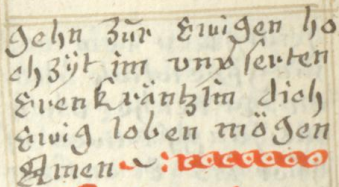 gehn zůr Ewigen ho
chzÿt im vnverserten
Erenkräntzlin dich
Ewig loben mögen
Amen